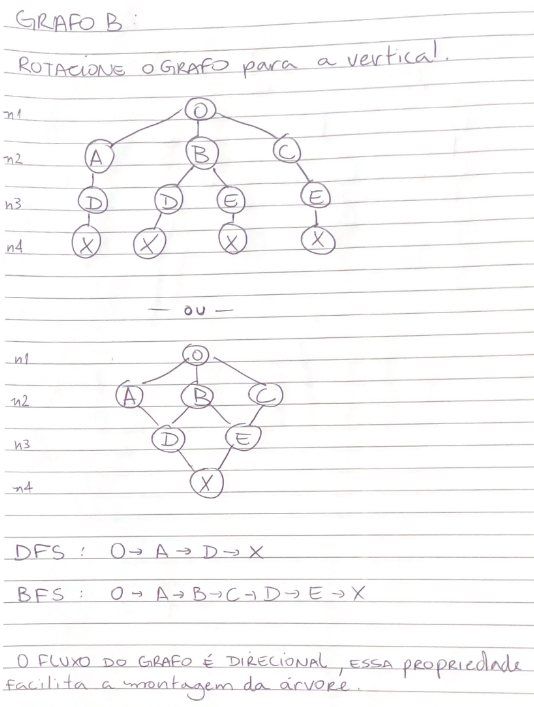 GRAFO B:
ROTACIONE O GRAFO para a vertical.
n1 O
n2 A B C
n3 D D E E
n4 X X X X
— ou —
n1 O
n2 A B C
n3 D E
n4 X
DFS : O → A → D → X
BFS : O → A → B → C → D → E → X
O FLUXO DO GRAFO É DIRECIONAL, ESSA propriedade
facilita a montagem da árvore.